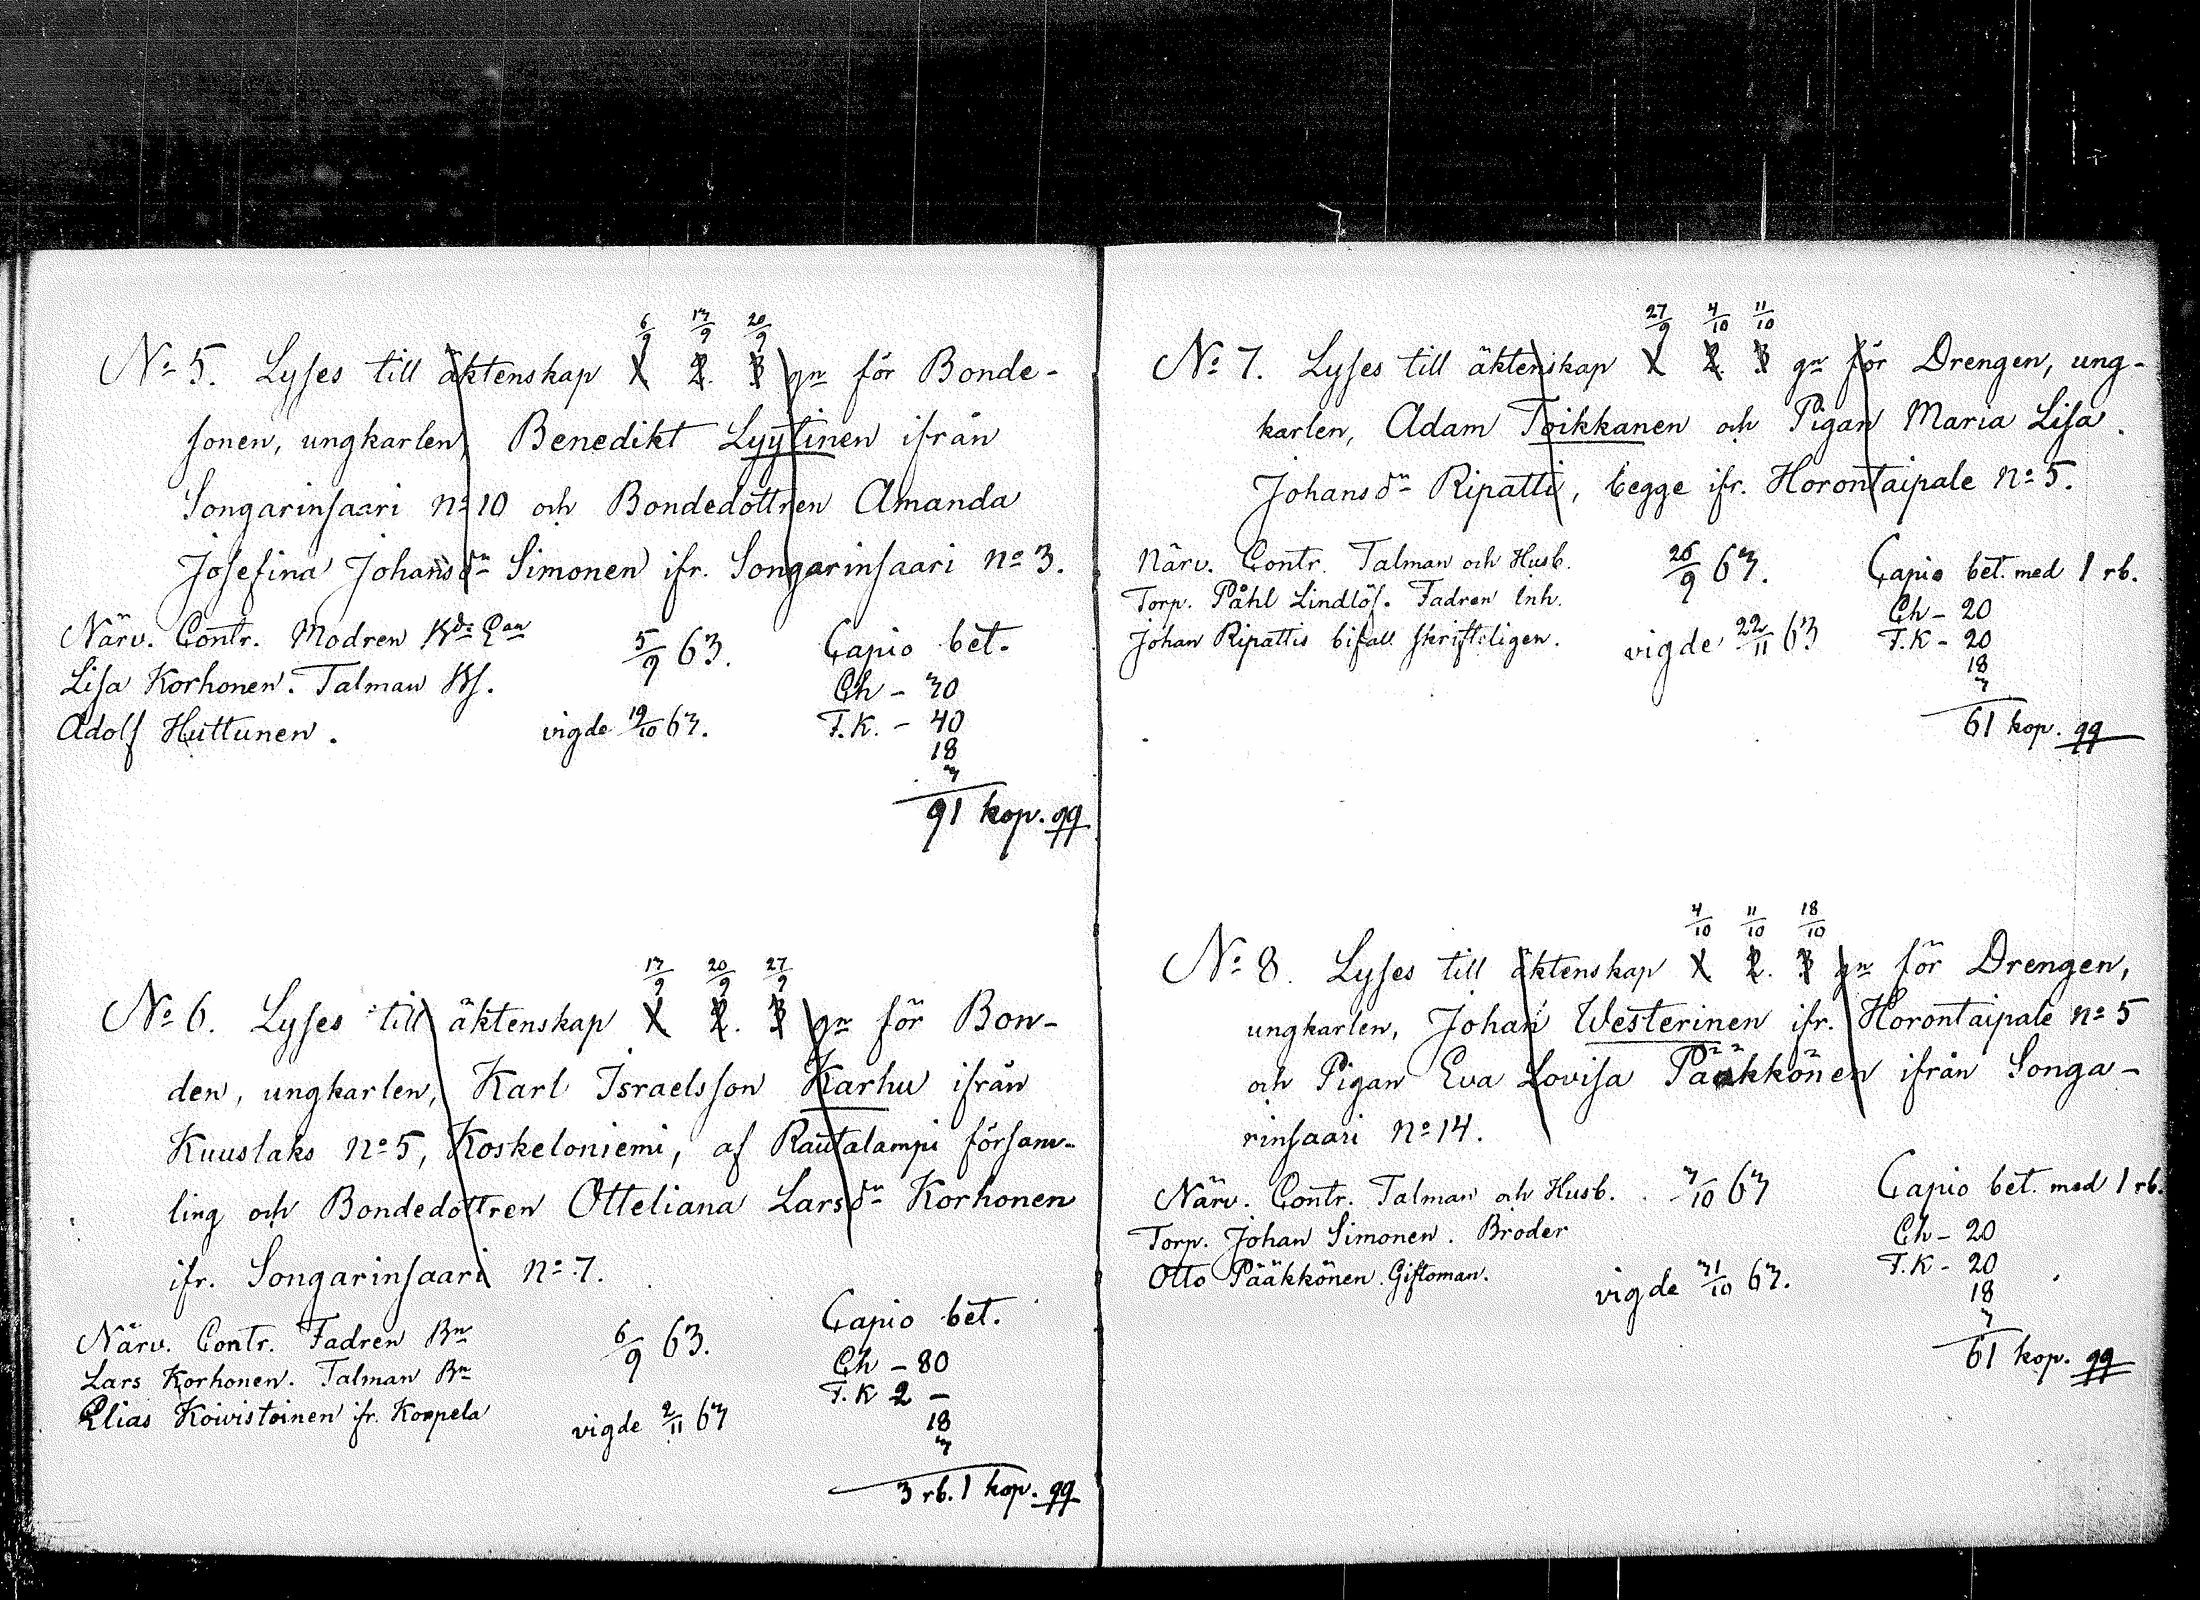 6/9 13/9 20/9
No 5. Lyses till äktenskap 1 2. 3 gr för Bonde-
sonen, ungkarlen, Benedikt Lyytinen ifrån
Songarinsaari no 10 och Bondedottren Amanda
Josefina Johansdr Simonen ifr. Songarinsaari no 3.
Närv. Contr. Modren
Lisa Korhonen. Talman
Adolf Huttunen.
5/9 63.
vigde 19/10 63.
Capio bet.
Ch - 30
F.K. - 40
18
3
91 kop. qq
13/9 20/9 27/9
No 6. Lyses till äktenskap 1 2. 3 gr för Bon-
den, ungkarlen, Karl Israelsson Karhu ifrån
Kuuslaks no 5, Koskeloniemi, af Rautalampi försam-
ling och Bondedottren Otteliana Larsdr Korhonen
ifr. Songarinsaari no 7.
Närv. Contr. Fadren Bn
Lars Korhonen. Talman Bn
Elias Koivistoinen ifr. Korpela
6/9 63.
vigde 2/11 63
Capio bet.
Ch - 80
F.K 2 -
18
3
3 rb. 1 kop. qq
27/9 4/10 11/10
No 7. Lyses till äktenskap 1 2. 3 gr för Drengen, ung-
karlen, Adam Toikkanen och Pigan Maria Lisa
Johansdr Ripatti, begge ifr. Horontaipale no 5.
Närv. Contr. Talman och Husb.
Torp. Påhl Lindlöf. Fadren Inh.
Johan Ripattis bifall skriftligen.
26/9 63.
vigde 22/11 63
Capio bet. med 1 rb.
Ch - 20
F.K - 20
18
3
61 kop. qq
4/10 11/10 18/10
No 8. Lyses till äktenskap 1 2. 3 gr för Drengen,
ungkarlen, Johan Westerinen ifr. Horontaipale no 5
och Pigan Eva Lovisa Pääkkönen ifrån Songa-
rinsaari no 14.
Närv. Contr. Talman och Husb.
Torp. Johan Simonen. Broder
Otto Pääkkönen. Giftoman.
3/10 63
vigde 31/10 63.
Capio bet. med 1 rb.
Ch - 20
F.K - 20
18
3
61 kop. qq